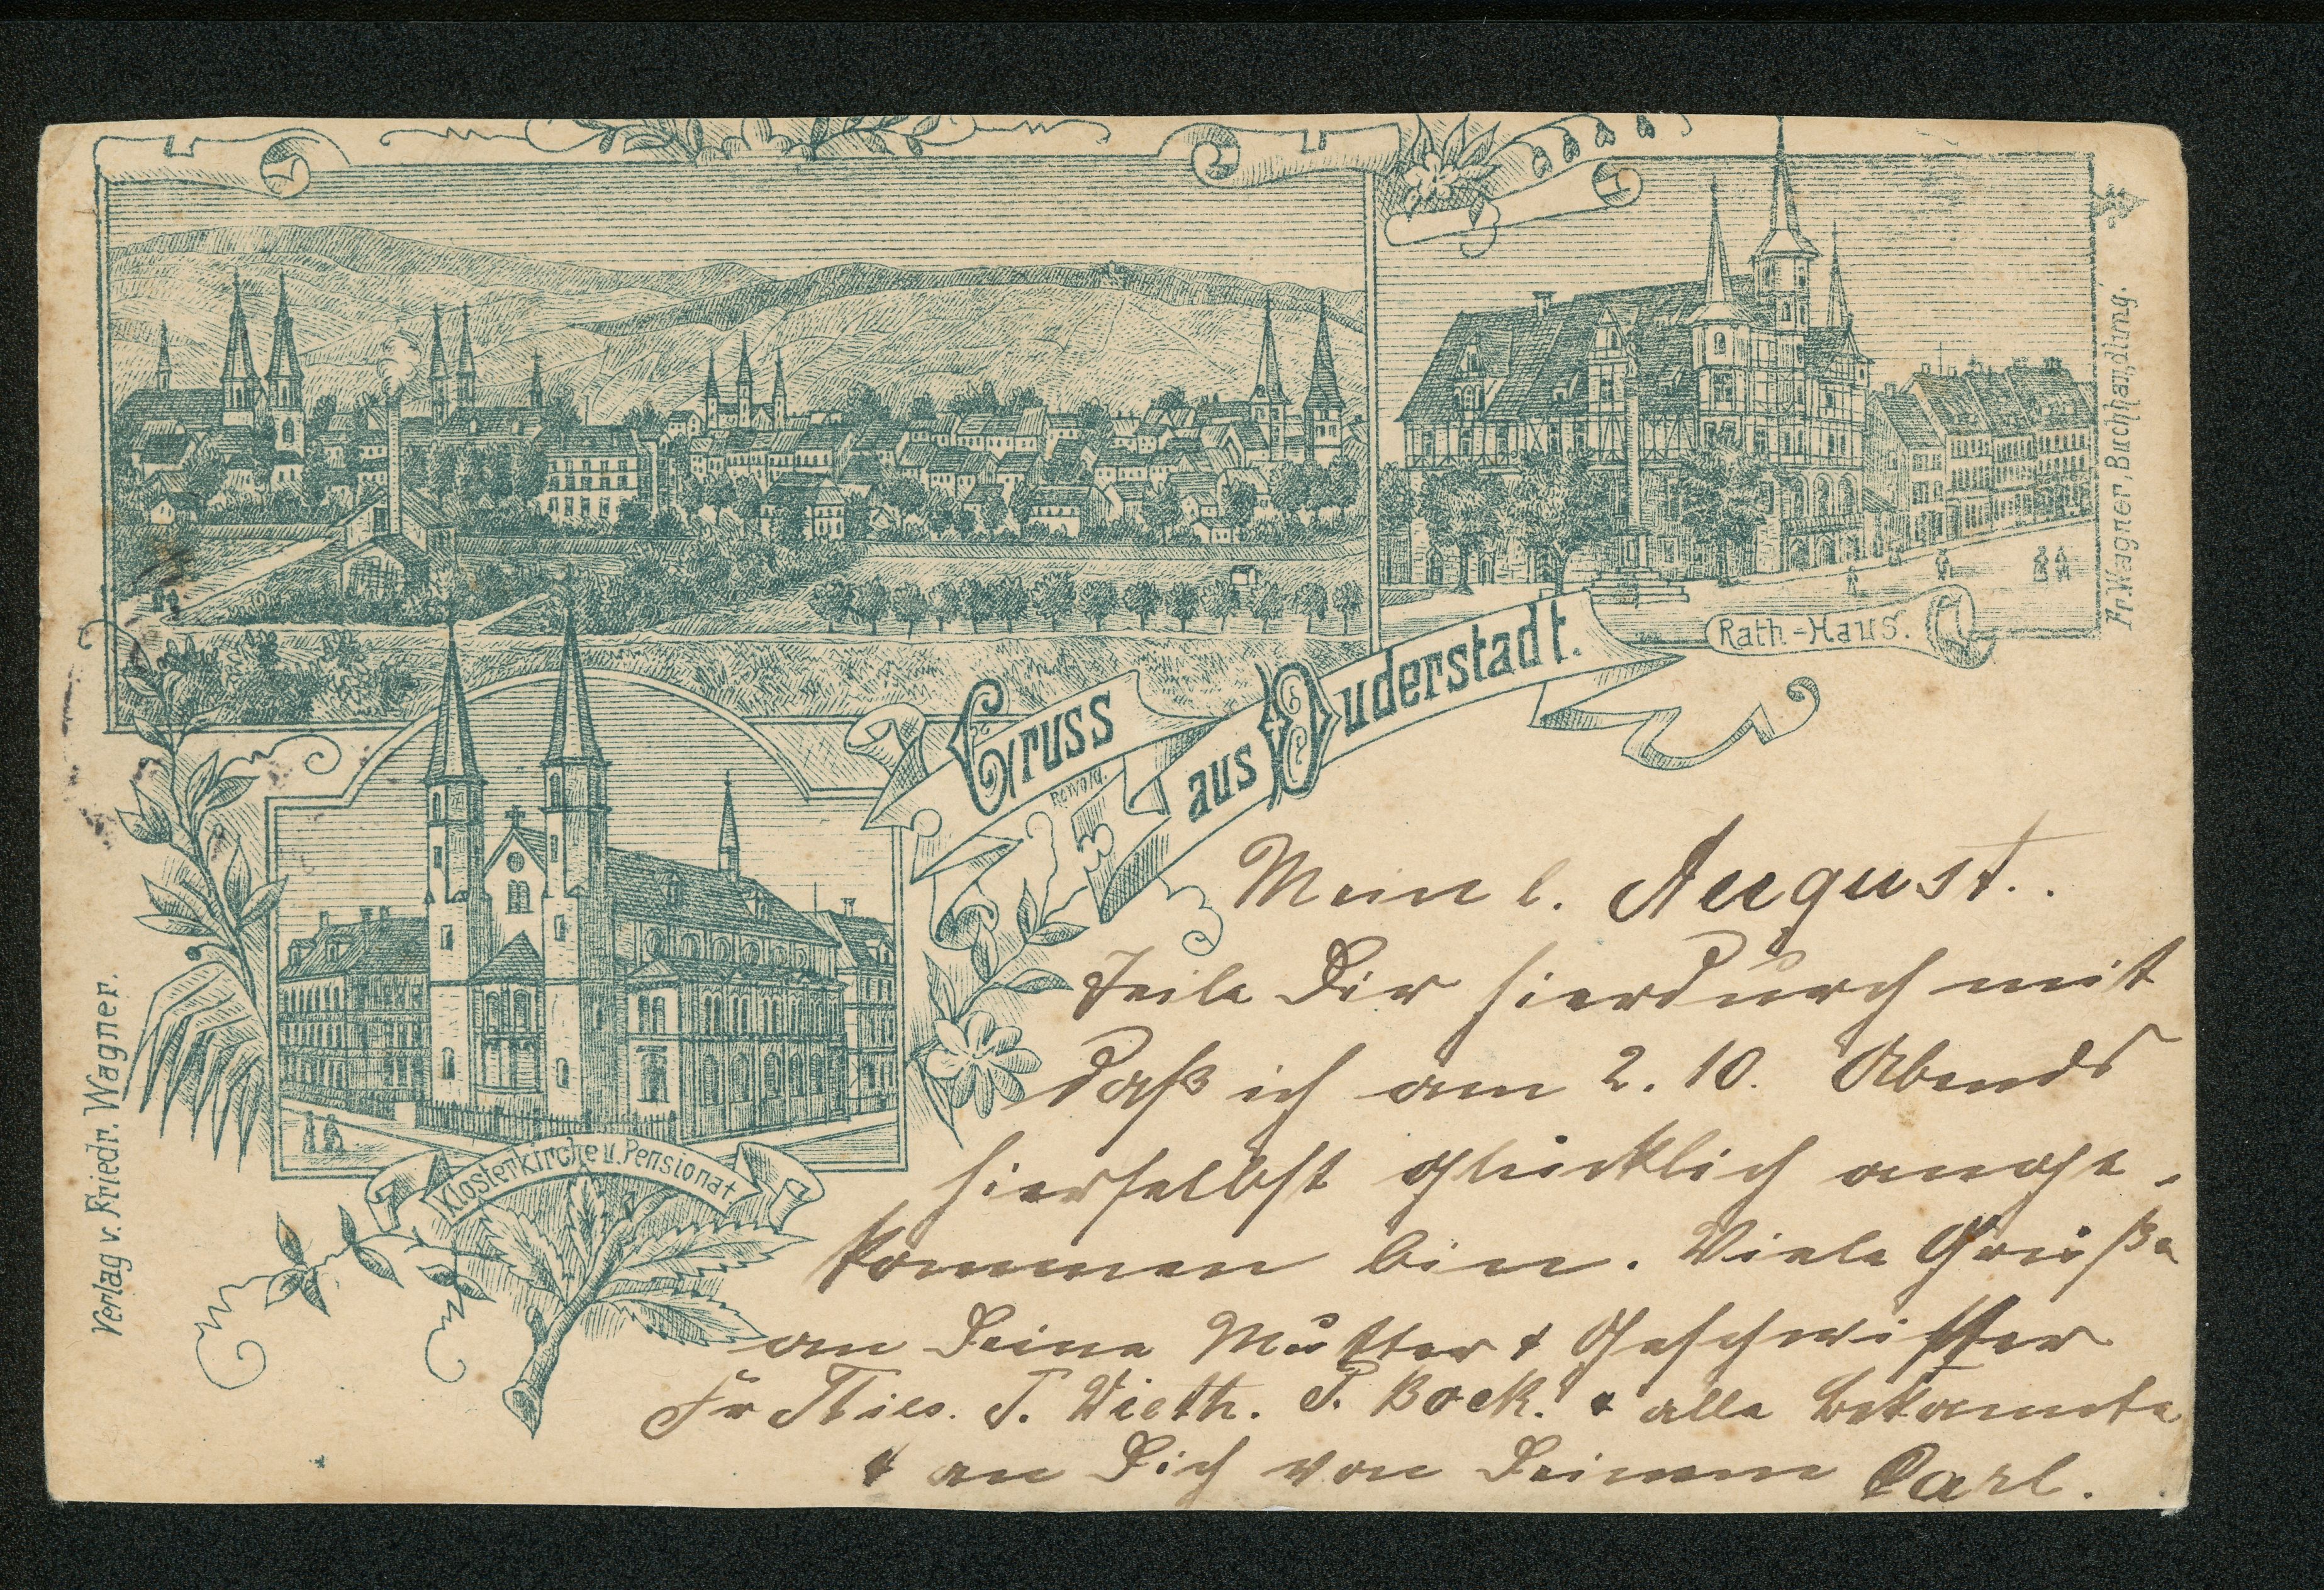 Fr. Wagner, Buchhandlung.
Rath-Haus.
Gruss
aus Duderstadt.
Klosterkirche u. Pensionat
Verlag v. Friedr. Wagner.
Mein l. August.
Teile Dir hierdurch mit
daß ich am 2. 10. Abends
hierselbst glücklich ange-
kommen bin. Viele Grüße
an Deine Mutter & Geschwister
Thies. T. Wieth. Bock. & alle bekannte
& an Dich von Deinem Carl.